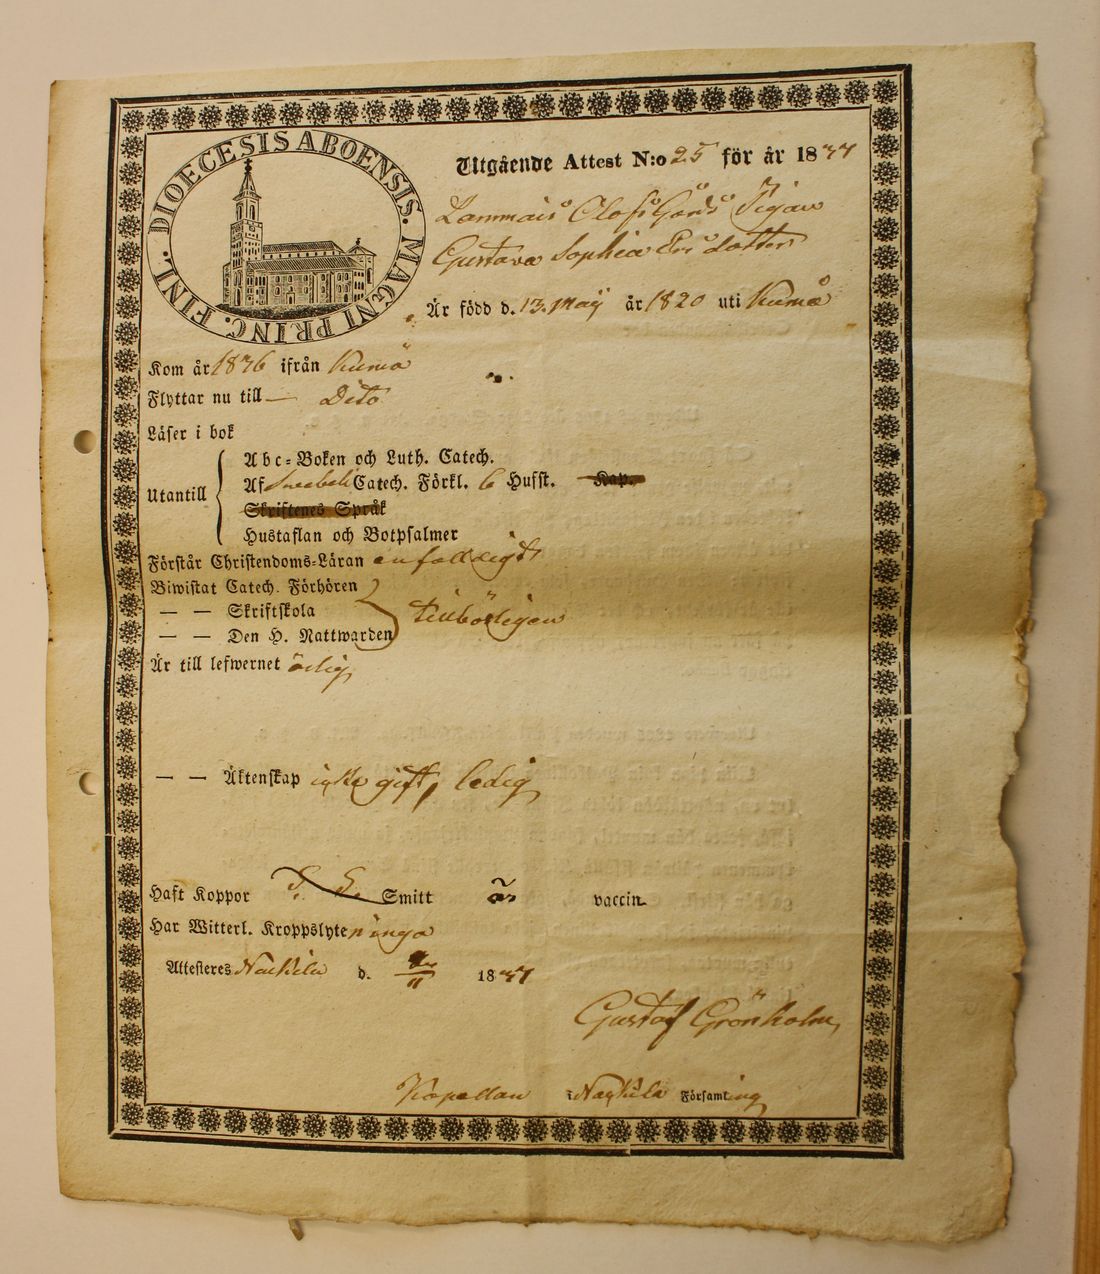 DIOECESIS ABOENSIS. MAGNI PRINC. FINL.
Utgående Attest N:o 25 för år 1837
Lammais Olofsgårds Pigan
Gustava Sophia Ersdotter
Är född d. 13. Maÿ år 1820 uti Kumo
Kom år 1836 ifrån Kumo
Flyttar nu till — Dito
Läser i bok
Abc-Boken och Luth. Catech.
Utantill Af Svebeli Catech. Förkl. 6 Husst. Kap.
Skriftenes Språk
Hustaflan och Botpsalmer
Förstår Christendoms-Läran enfaldigt
Biwistat Catech. Förhören
— — Skriftskola tillbörligen
— — Den H. Nattwarden
Är till lefwernet ärlig
— — Äktenskap icke gift, ledig
Haft Koppor Smitt vaccin.
Har Witterl. Kroppslyten inga
Attesteres Nackila d. 11 1837
Gustaf Grönholm
Kapellan i Nackila Församling